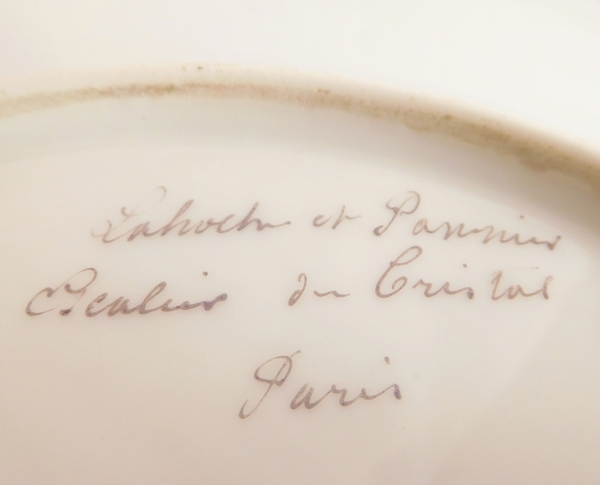 Lahoche et Pannier
Escalier de Cristal
Paris